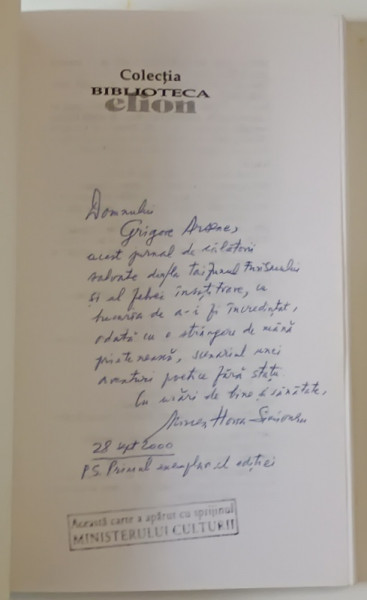 Colecția
BIBLIOTECA
elion
Domnului
Grigore Arsene,
acest jurnal de călătorii
salvate după
și al febrei însoțitoare, cu
bucuria de a-i fi încredințat,
odată cu o strângere de mână
prietenească, scenariul unei
aventuri poetice fără sfârșit
Cu urări de bine & sănătate,
Mircea Horia Simionescu
28 sept 2000
P.S. Primul exemplar al ediției
Această carte a apărut cu sprijinul
MINISTERULUI CULTURII